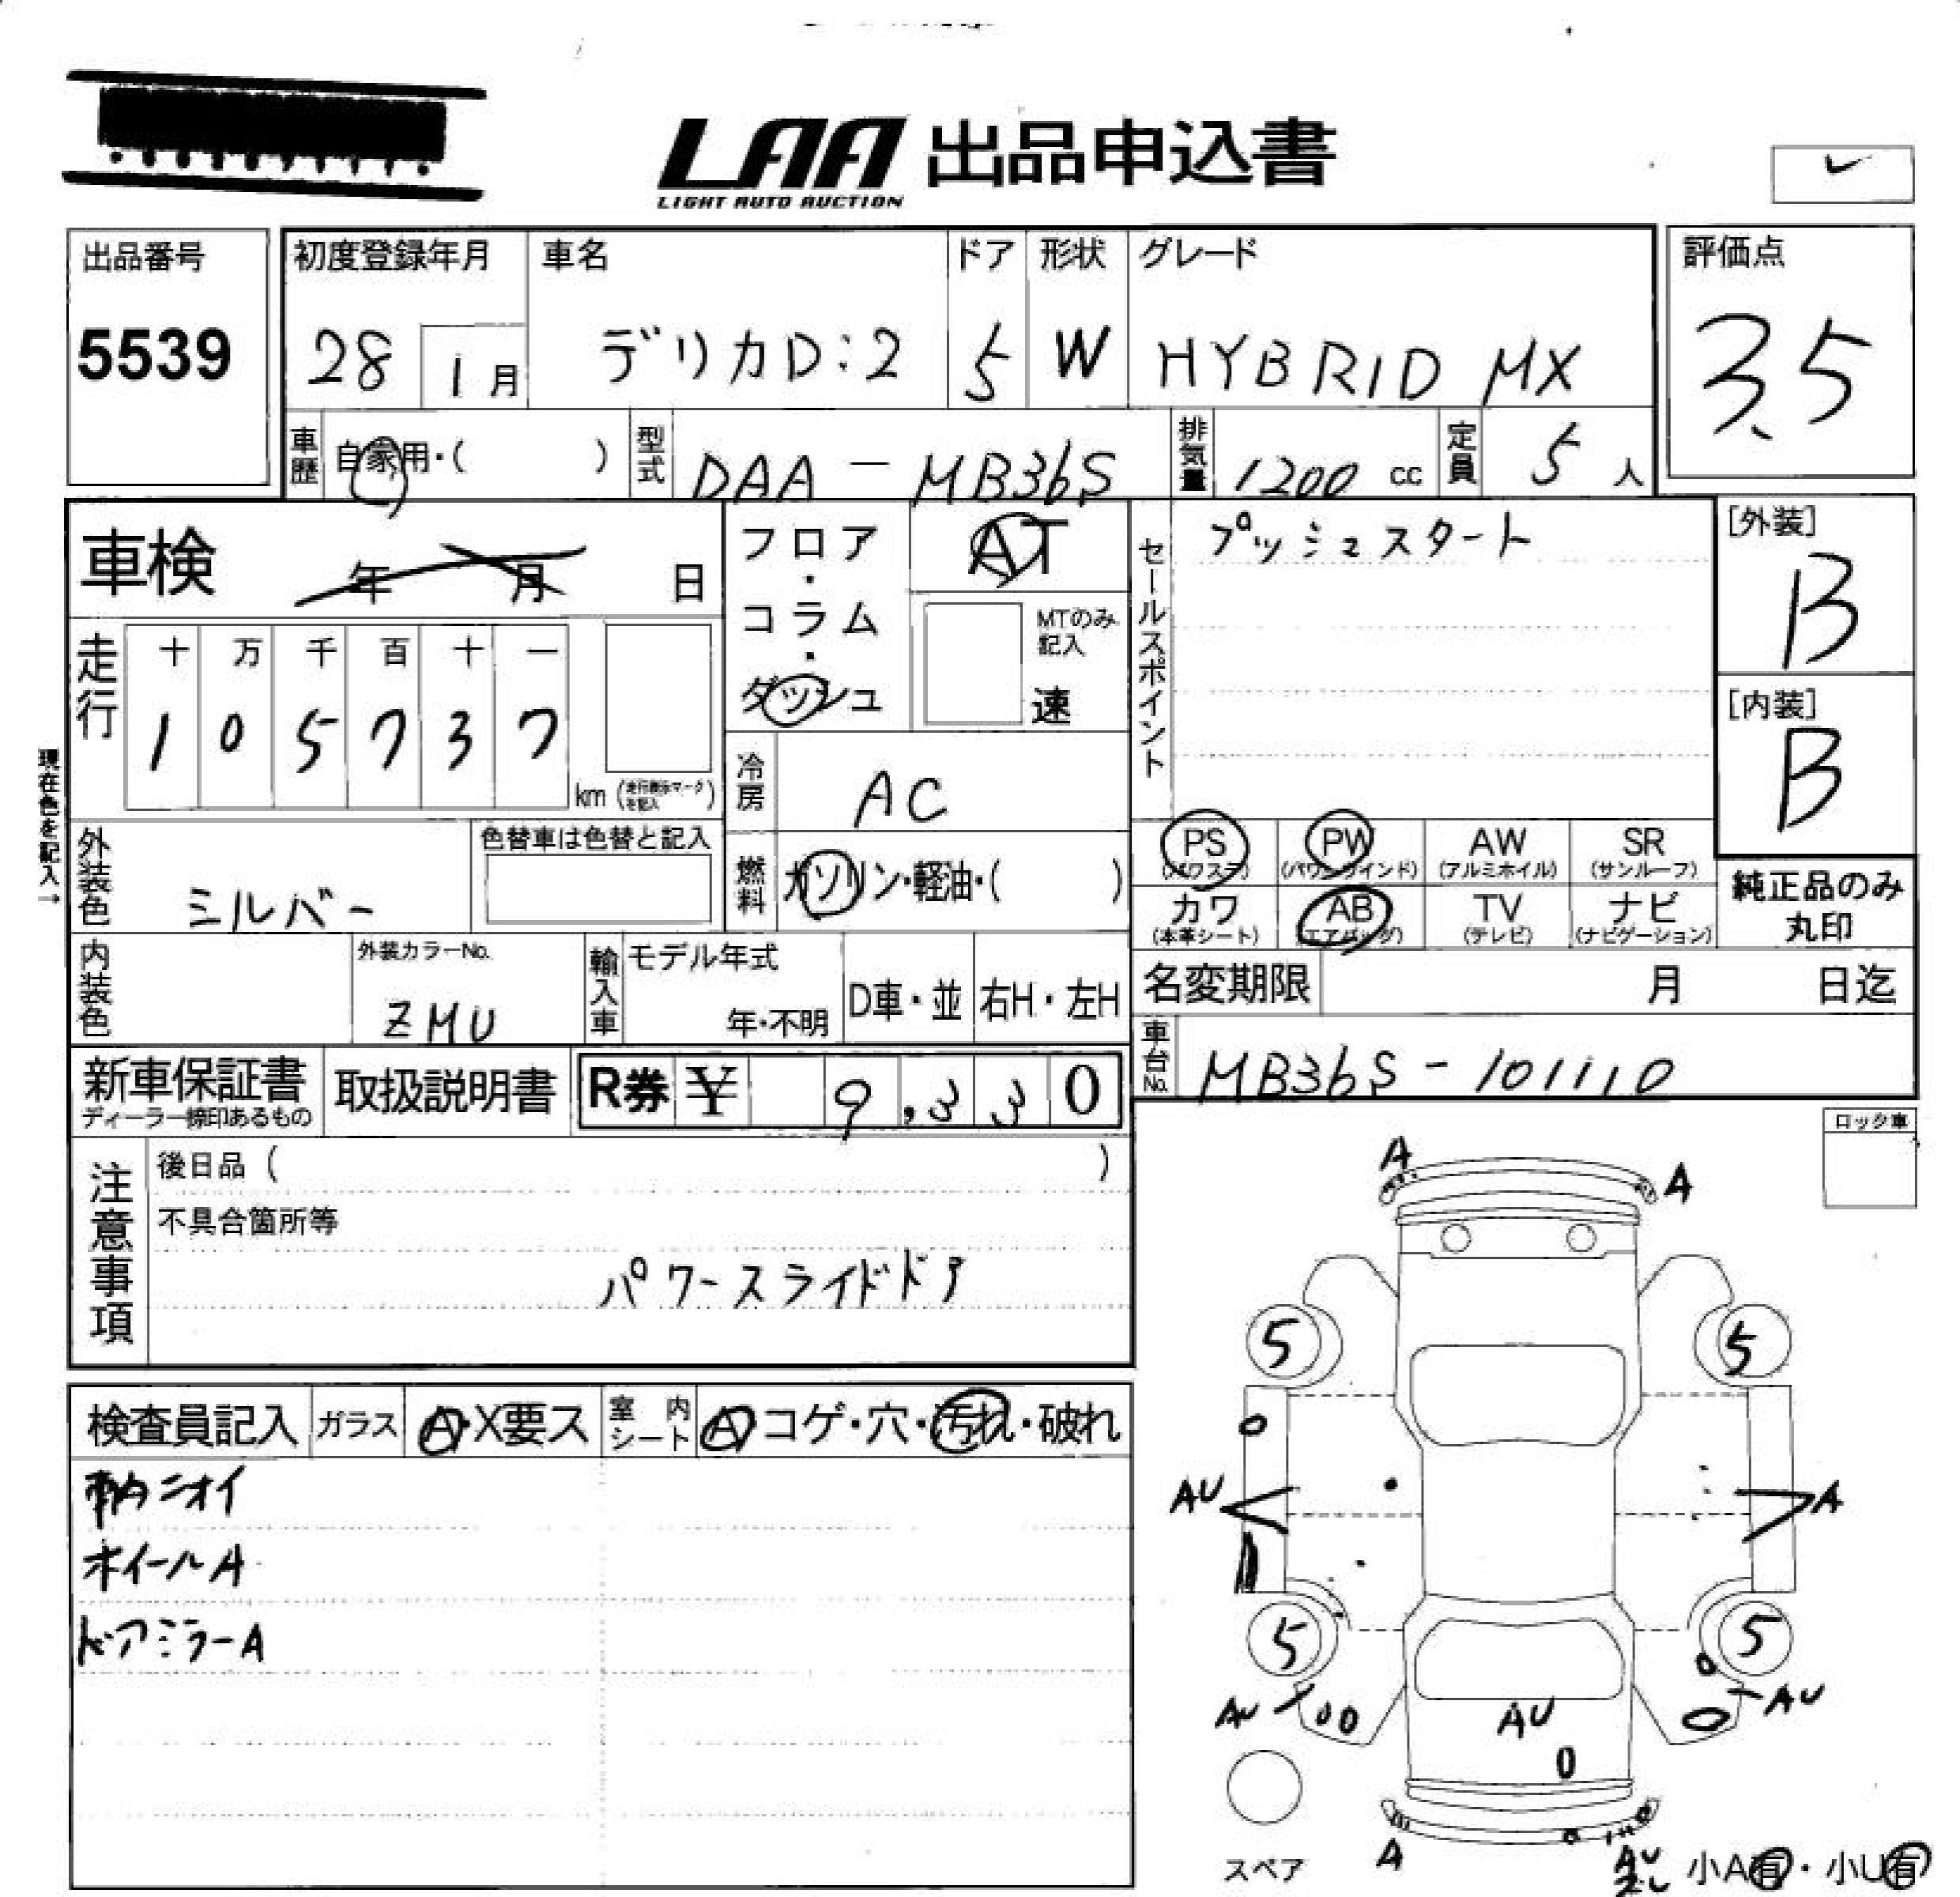 LAA 出品申込書
LIGHT AUTO AUCTION
出品番号
5539
初度登録年月
28 1月
車名
デリカD:2
ドア
5
形状
W
グレード
HYBRID MX
評価点
3.5
車歴 自家用・( )
型式 DAA-MB36S
排気量 1200 cc
定員 5 人
車検 年 月 日
フロア・コラム・ダッシュ
AT
MTのみ記入
速
セールスポイント
プッシュスタート
[外装]
B
[内装]
B
走行
十 万 千 百 十 一
1 0 5 7 3 7
km (走行表示マークを記入)
現在色を記入→
冷房 AC
外装色 シルバー
色替車は色替と記入
燃料 ガソリン・軽油・( )
PS (パワステ) PW (パワーウインド) AW (アルミホイル) SR (サンルーフ)
カワ (本革シート) AB (エアバッグ) TV (テレビ) ナビ (ナビゲーション)
純正品のみ
丸印
内装色
外装カラーNo.
ZMU
輸入車
モデル年式
年・不明
D車・並
右H・左H
名変期限 月 日迄
車台No. MB36S-101110
新車保証書
ディーラー捺印あるもの
取扱説明書
R券 ¥ 9,330
注意事項
後日品 ( )
不具合箇所等
パワースライドドア
ロック車
検査員記入
ガラス A・X要ス
室内シート A コゲ・穴・汚れ・破れ
車内ニオイ
ホイールA
ドアミラーA
A
A
5
5
AU
A
5
5
AU
AU
AU
A
AU
スペア
小A有・小U有